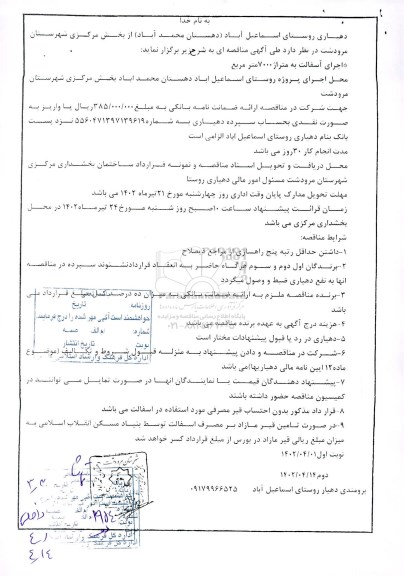 به نام خدا
دهیاری روستای اسماعیل آباد (دهستان محمد آباد) از بخش مرکزی شهرستان
مرودشت در نظر دارد طی آگهی مناقصه ای به شرح زیر برگزار نماید:
اجرای آسفالت به متراژ ۷۰۰۰ متر مربع
محل اجرای پروژه روستای اسماعیل اباد دهستان محمد اباد بخش مرکزی شهرستان
مرودشت
جهت شرکت در مناقصه ارائه ضمانت نامه بانکی به مبلغ ۳۸۵/۰۰۰/۰۰۰ ریال یا واریز به
صورت نقدی بحساب سپرده دهیاری به شماره ۵۵۶۰۴۷۱۳۹۷۱۳۹۶۱۹ نزد پست
بانک بنام دهیاری روستای اسماعیل اباد الزامی است
مدت انجام کار ۳۰ روز می باشد
محل دریافت و تحویل اسناد مناقصه و نمونه قرارداد ساختمان بخشداری مرکزی
شهرستان مرودشت مسئول امور مالی دهیاری روستا
مهلت تحویل مدارک پایان وقت اداری روز چهارشنبه مورخ ۲۱ تیرماه ۱۴۰۲ می باشد
زمان قرائت پیشنهاد ساعت ۱۰ صبح روز شنبه مورخ ۲۴ تیرماه ۱۴۰۲ در محل
بخشداری مرکزی می باشد
شرایط مناقصه:
۱-داشتن حداقل رتبه پنج راهسازی از مراجع ذیصلاح
۲-برندگان اول دوم و سوم هرگاه حاضر به انعقاد قرارداد نشوند سپرده در مناقصه
انها به نفع دهیاری ضبط و وصول میگردد
۳-برنده مناقصه ملزم به ارائه ضمانت بانکی به میزان ده درصد کل مبلغ قرارداد می
باشد
۴-هزینه درج آگهی به عهده برنده مناقصه می باشد
۵-دهیاری در رد یا قبول پیشنهادات مختار است
۶-شرکت در مناقصه و دادن پیشنهاد به منزله قبول شروط و تکالیف (موضوع
ماده ۱۲ ایین نامه مالی دهیاریها) می باشد
۷-پیشنهاد دهندگان قیمت یا نمایندگان انها در صورت تمایل می توانند در
کمیسیون مناقصه حضور داشته باشند
۸-قرار داد مذکور بدون احتساب قیر مصرفی مورد استفاده در اسفالت می باشد
۹-در صورت تامین قیر مازاد بر مصرف اسفالت توسط بنیاد مسکن انقلاب اسلامی به
میزان مبلغ ریالی قیر مازاد در بورس از مبلغ قرارداد کسر خواهد شد
نوبت اول ۱۴۰۲/۰۴/۰۱
دوم ۱۴۰۲/۰۴/۱۴
برومندی دهیار روستای اسماعیل آباد ۰۹۱۷۹۹۶۶۵۲۵